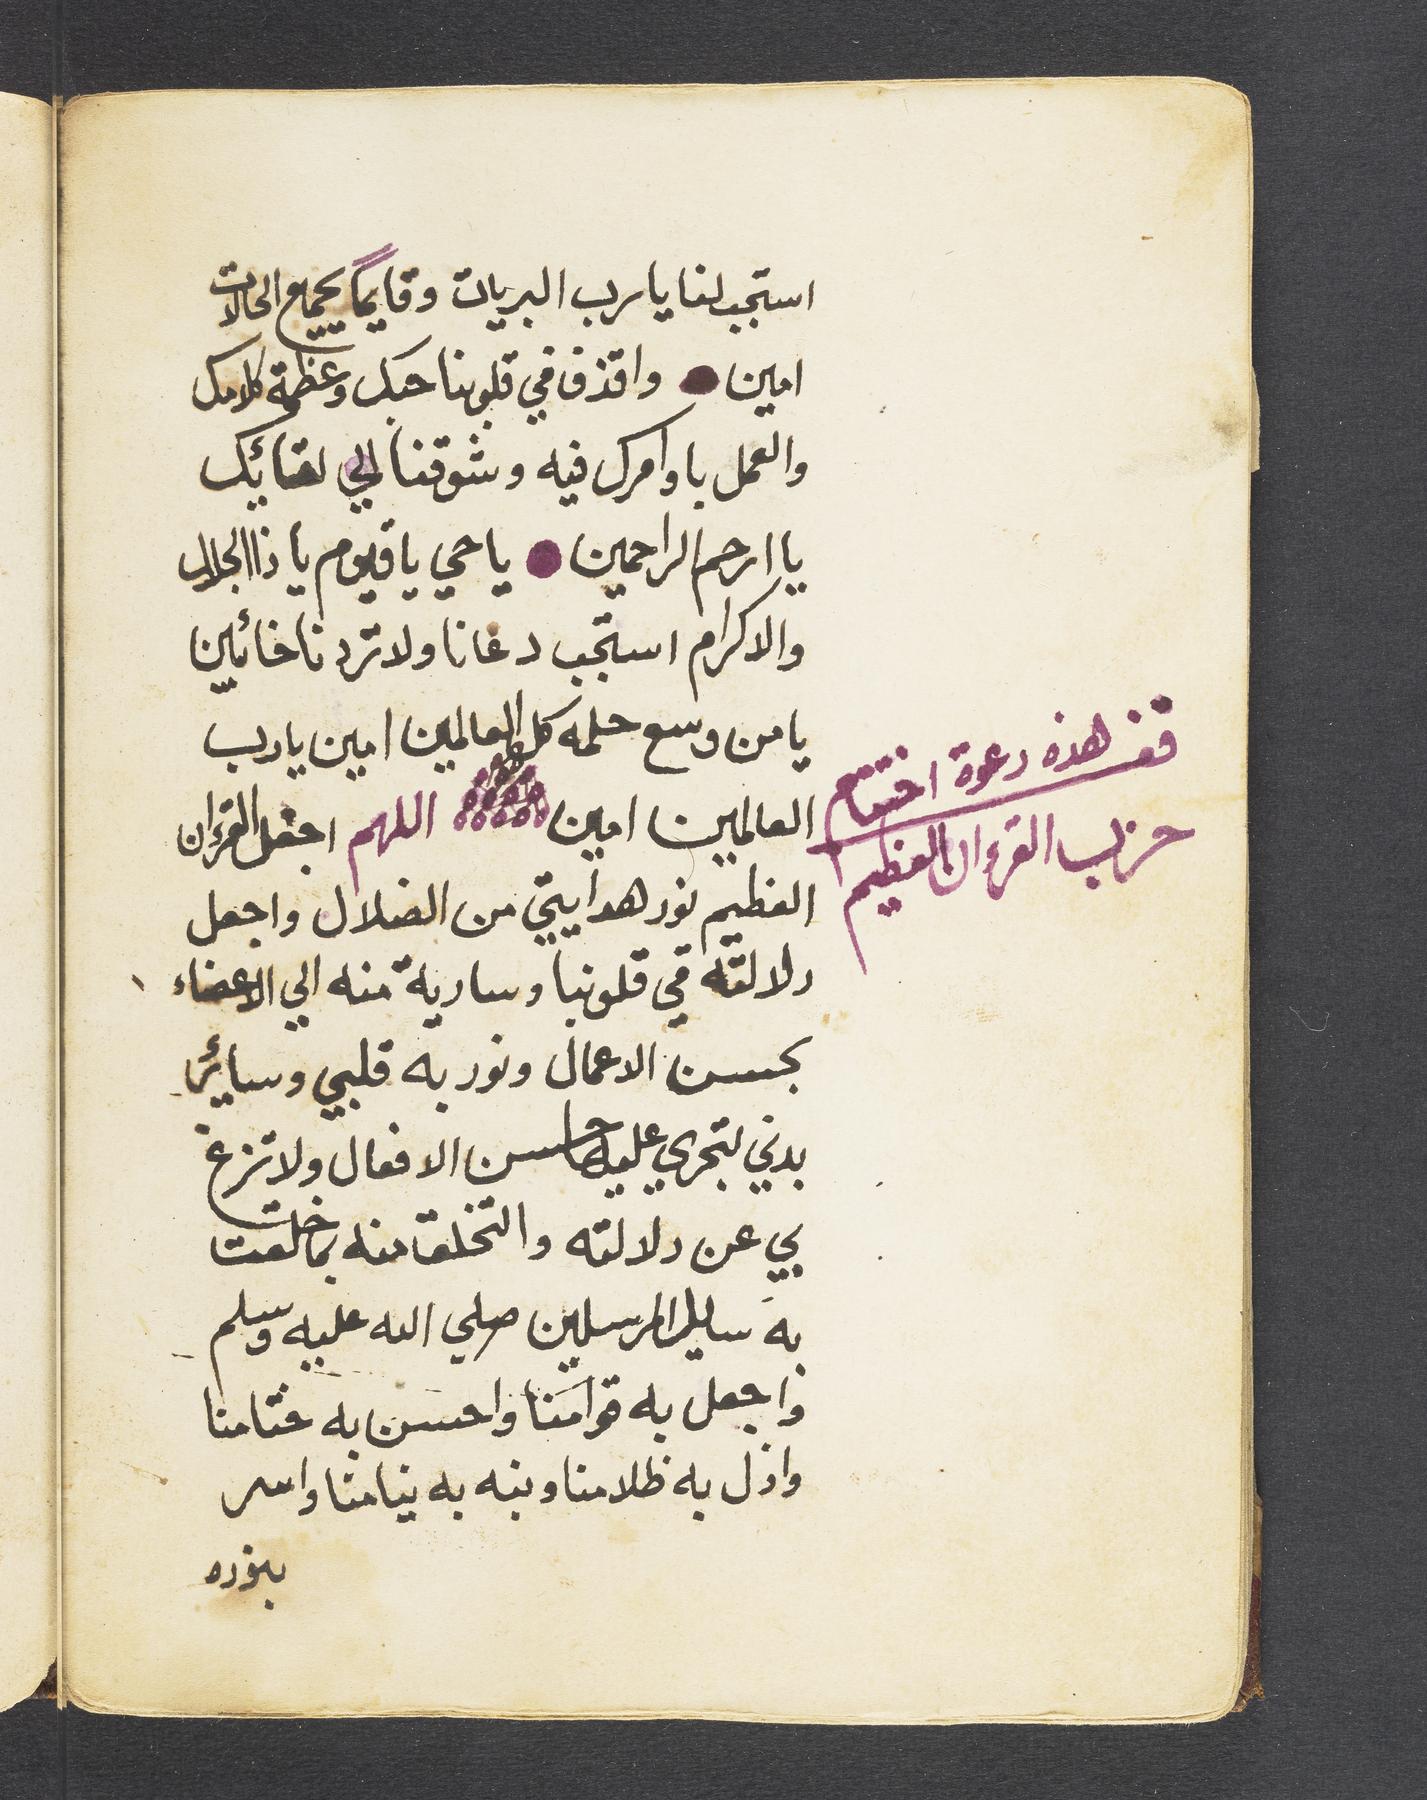 استجب لنا يا رب البريات وقايمًا بجميع الحالات
امين واقذف في قلوبنا حبك وعظمة كلامك
والعمل باوامرك فيه وشوقنا الي لقائك
يا ارحم الراحمين يا حي يا قيوم يا ذا الجلال
والاكرام استجب دعانا ولا تردنا خائبين
يا من وسع حلمه كل العالمين امين يا رب
العالمين امين اللهم اجعل القرءان
العظيم نور هدايتي من الضلال واجعل
دلالته في قلوبنا وسارية منه الي الاعضاء
بحسن الاعمال ونور به قلبي وسائر
بدني لتجري عليه احاسن الافعال ولا تزغ
بي عن دلالته والتخلق منه بما خلقت
به سائر المرسلين صلي الله عليه وسلم
واجعل به قوامنا واحسن به ختامنا
وازل به ظلامنا ونبه به نيامنا
بنوره
قف هذه دعوة اختتام
حزب القرءان العظيم